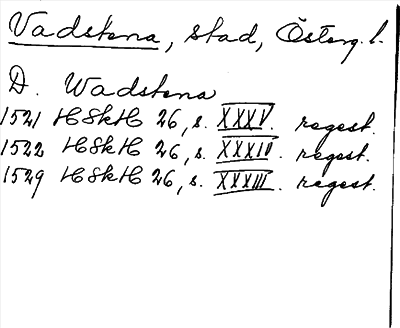 Vadstena, stad, Österg. l.
D. Wadstena
1521 HSkH 26, s. XXXV. regest.
1522 HSkH 26, s. XXXIV. regest.
1529 HSkH 26, s. XXXIII. regest.